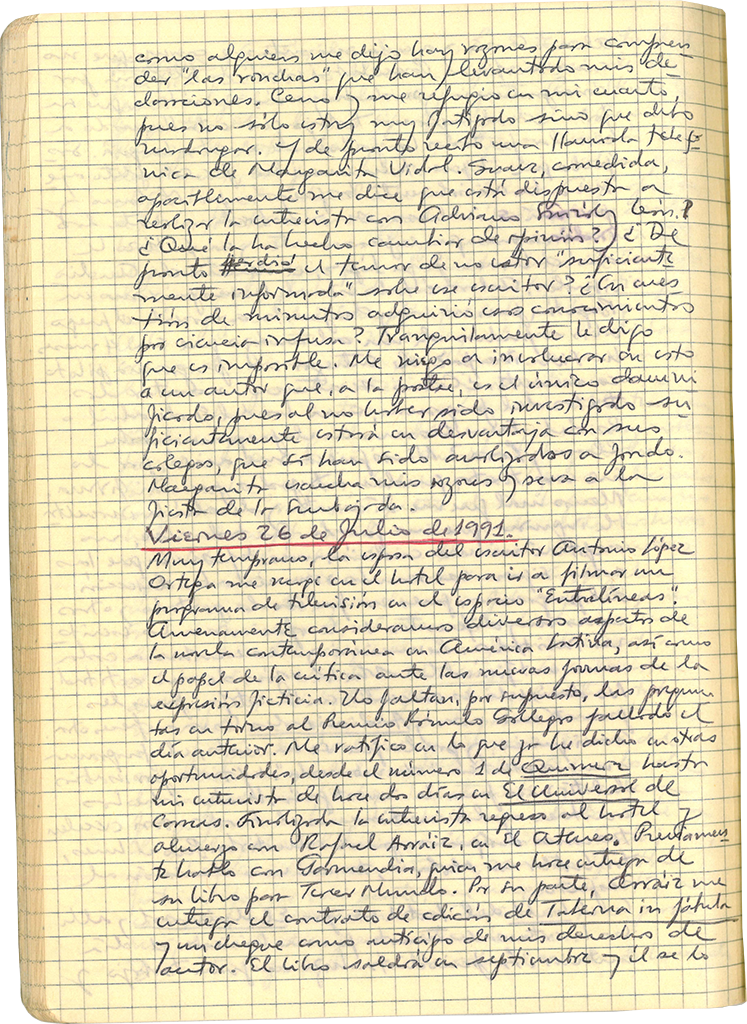 como alguien me dijo hay razones para compren
der "las ronchas" que han levantado mis de
claraciones. Ceno y me refugio en mi cuarto,
pues no sólo estoy muy fatigado sino que debo
madrugar. Y de pronto recibo una llamada telefó
nica de Margarita Vidal. Suave, comedida,
apaciblemente me dice que está dispuesta a
realizar la entrevista con Adriano León.
¿Qué la ha hecho cambiar de opinión? ¿De
pronto perdió el temor de no estar "suficiente
mente informada" sobre ese escritor? ¿En cues
tión de minutos adquirió esos conocimientos
por ciencia infusa? Tranquilamente le digo
que es imposible. Me niego a involucrar en esto
a un autor que, a la postre, es el único damni
ficado, pues al no haber sido investigado su
ficientemente estará en desventaja con sus
colegas, que sí han sido analizados a fondo.
Margarita escucha mis razones y se va a la
fiesta de la Embajada.
Viernes 26 de Julio de 1991.
Muy temprano, la esposa del escritor Antonio López
Ortega me recoge en el hotel para ir a filmar un
programa de televisión en el espacio "Entrelíneas".
Amenamente consideramos diversos aspectos de
la novela contemporánea en América Latina, así como
el papel de la crítica ante las nuevas formas de la
expresión ficticia. No faltan, por supuesto, las pregun
tas en torno al Premio Rómulo Gallegos fallado el
día anterior. Me ratifico en lo que ya he dicho en otras
oportunidades, desde el número 1 de Quimera hasta
mi entrevista de hace dos días en El Universal de
Caracas. Finalizada la entrevista regreso al hotel y
almuerzo con Rafael Arráiz, en El Ateneo. Previamen
te hablo con Garmendia, quien me hace entrega de
su libro para Tercer Mundo. Por su parte, Arráiz me
entrega el contrato de edición de Taberna in fabula
y un cheque como anticipo de mis derechos de
autor. El libro saldrá en septiembre y él se lo